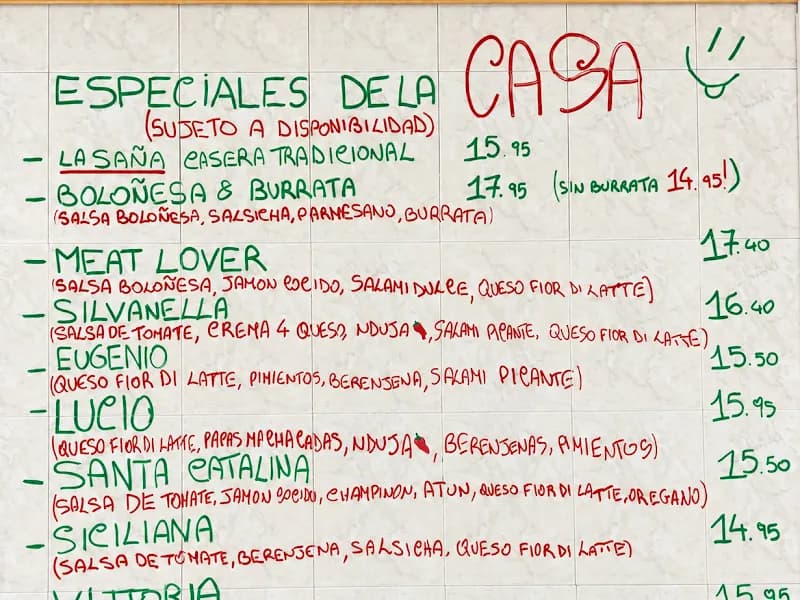 ESPECIALES DE LA CASA
(SUJETO A DISPONIBILIDAD)
- LASAÑA CASERA TRADICIONAL 15.95
- BOLOÑESA & BURRATA 17.95 (SIN BURRATA 14.95!)
(SALSA BOLOÑESA, SALSICHA, PARMESANO, BURRATA)
- MEAT LOVER 17.40
(SALSA BOLOÑESA, JAMON COCIDO, SALAMI DULCE, QUESO FIOR DI LATTE)
- SILVANELLA 16.40
(SALSA DE TOMATE, CREMA 4 QUESO, NDUJA🌶, SALAMI PICANTE, QUESO FIOR DI LATTE)
- EUGENIO 15.50
(QUESO FIOR DI LATTE, PIMIENTOS, BERENJENA, SALAMI PICANTE)
- LUCIO 15.95
(QUESO FIOR DI LATTE, PAPAS MACHACADAS, NDUJA🌶, BERENJENAS, PIMIENTOS)
- SANTA CATALINA 15.50
(SALSA DE TOMATE, JAMON COCIDO, CHAMPINON, ATUN, QUESO FIOR DI LATTE, OREGANO)
- SICILIANA 14.95
(SALSA DE TOMATE, BERENJENA, SALSICHA, QUESO FIOR DI LATTE)
VITTORIA 15.95